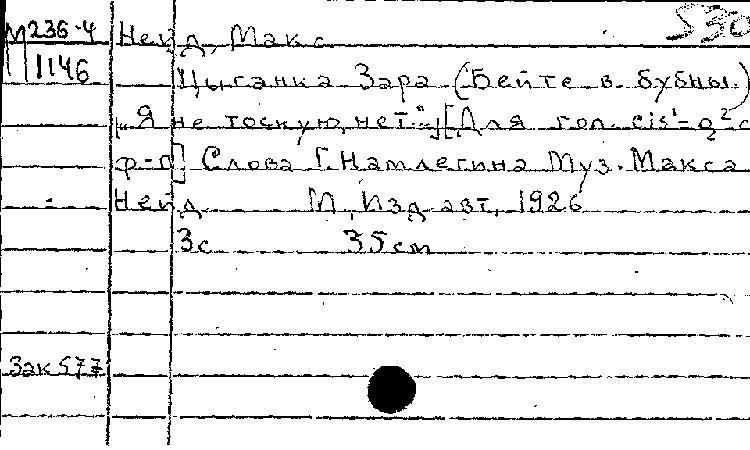 М 236-4 Нейд, Макс 530
1146 Цыганка Зара (Бейте в бубны.)
„Я не тоскую, нет." [Для гол. cis¹-g² с
ф-п] Слова Г. Намлегина Муз. Макса
Нейд М, Изд. авт, 1926
3с 35см
Зак 577